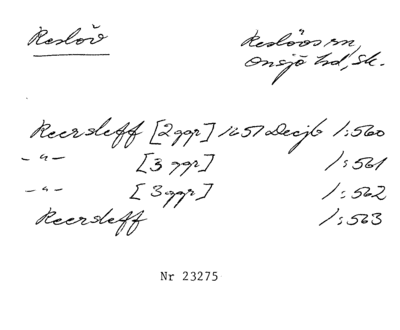 Reslöv Reslövs sn,
Onsjö hd, Sk.
Reersleff [2 ggr] 1651 Decjb 1:560
-"- [3 ggr] 1:561
-"- [3 ggr] 1:562
Reersleff 1:563
Nr 23275